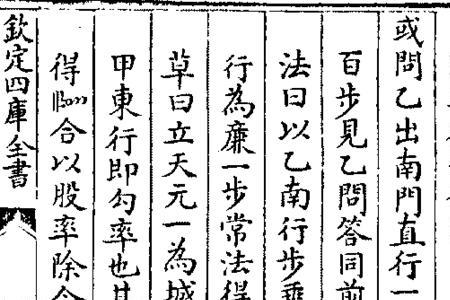 或問乙出南門直行一
百步見乙問答同前
法曰以乙南行步乘
行為廉一步常法得
草曰立天元一為城
甲東行即勾率也其
得合以股率除今
欽定四庫全書